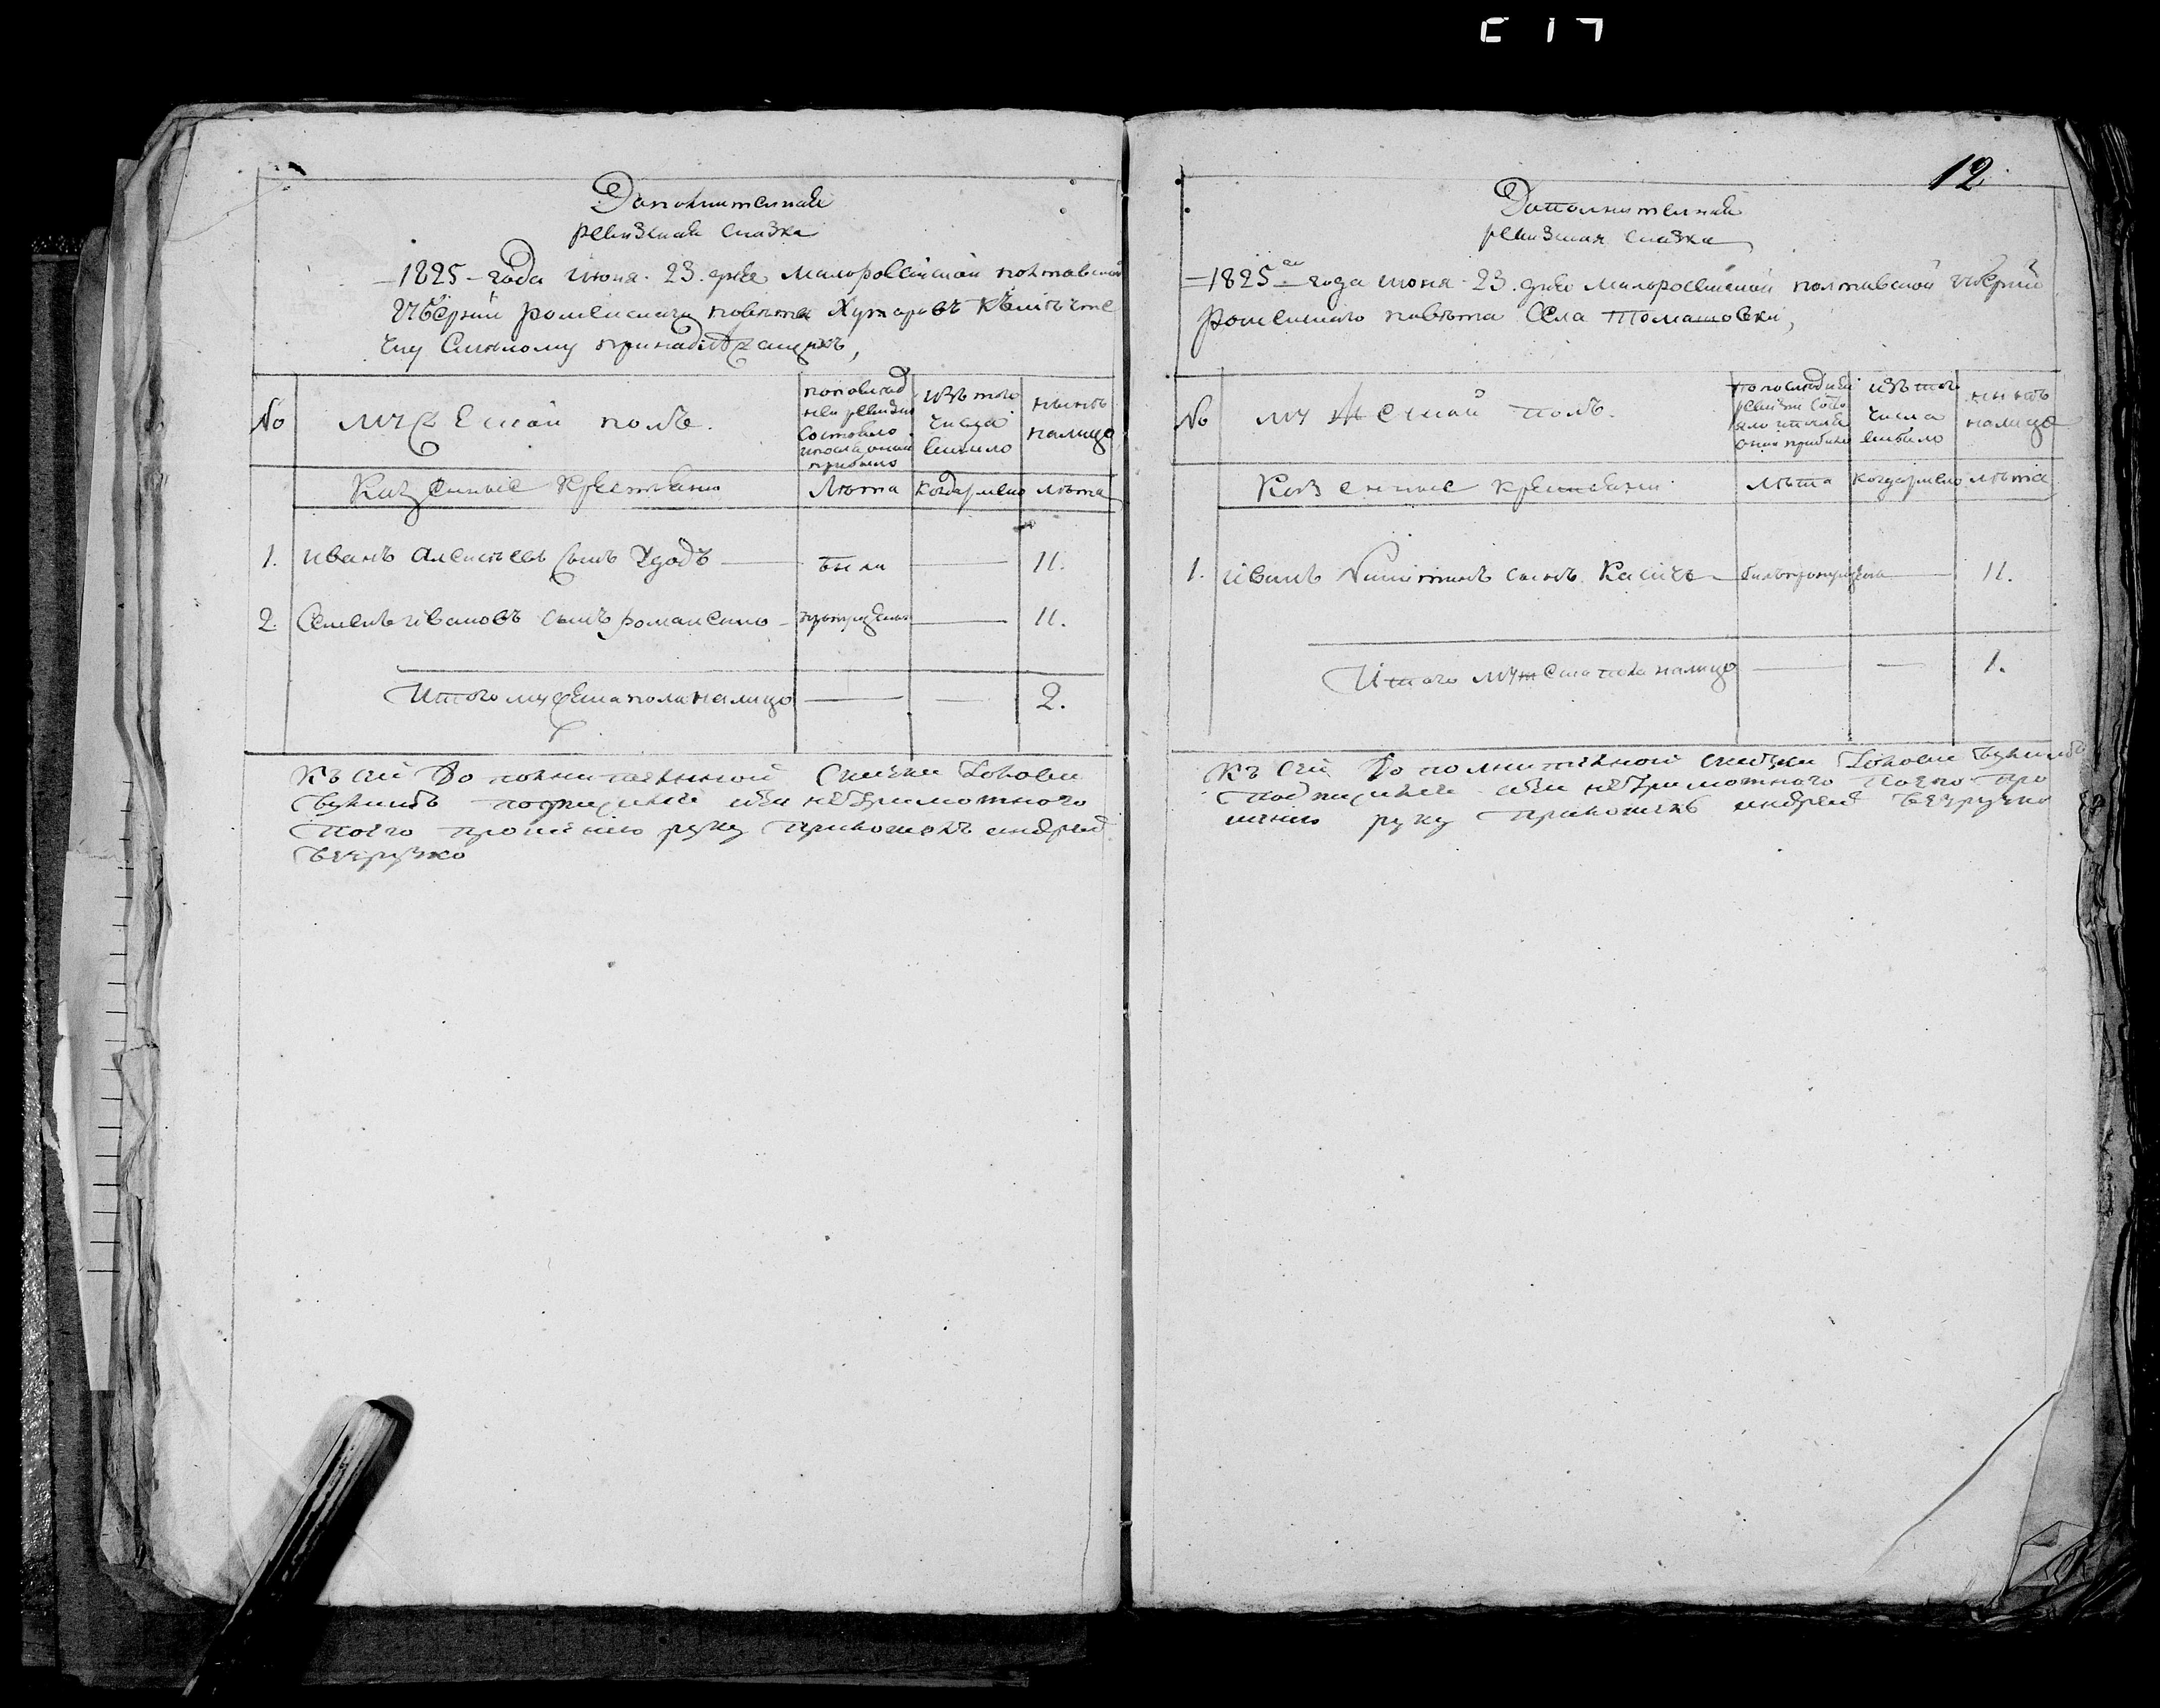 Дополнительная
ревизская сказка
1825 года июня 23 дня Малороссийской полтавской
губернии роменского повета Хуторовъ къ местечке
чку Смелому принадлежащихъ,
№
мужеской полъ.
по послед
ней ревизии
состояло
и после оной
прибыло
изъ того
числа
выбыло
ныне
налицо
Казенные крестьяне
Лета
когда имено
лета
1. иванъ Алексеевъ сынъ Удодъ
были
11.
2. Семенъ ивановъ сынъ романенко
пропущены
11.
Итого мужеска пола налицо
2.
Къ сей дополнительной скаски
подписался неграмотного
по его прошению руку приложилъ андрей
12
Дополнительная
ревизская сказка
1825 года июня 23 дня Малороссийской полтавской губернии
роменского повета Села Томашовки,
№
мужеской полъ.
по последней
ревизии состо
яло и после
оной прибыло
изъ того
числа
выбыло
ныне
налицо
Казенные крестьяни
лета
когда имено
лета
1. иванъ Никитинъ сынъ
былъ пропущенъ
11.
Итого мужеска пола налицо
1.
Къ сей дополнительной скаски
неграмотного по его про
шению руку приложилъ андрей